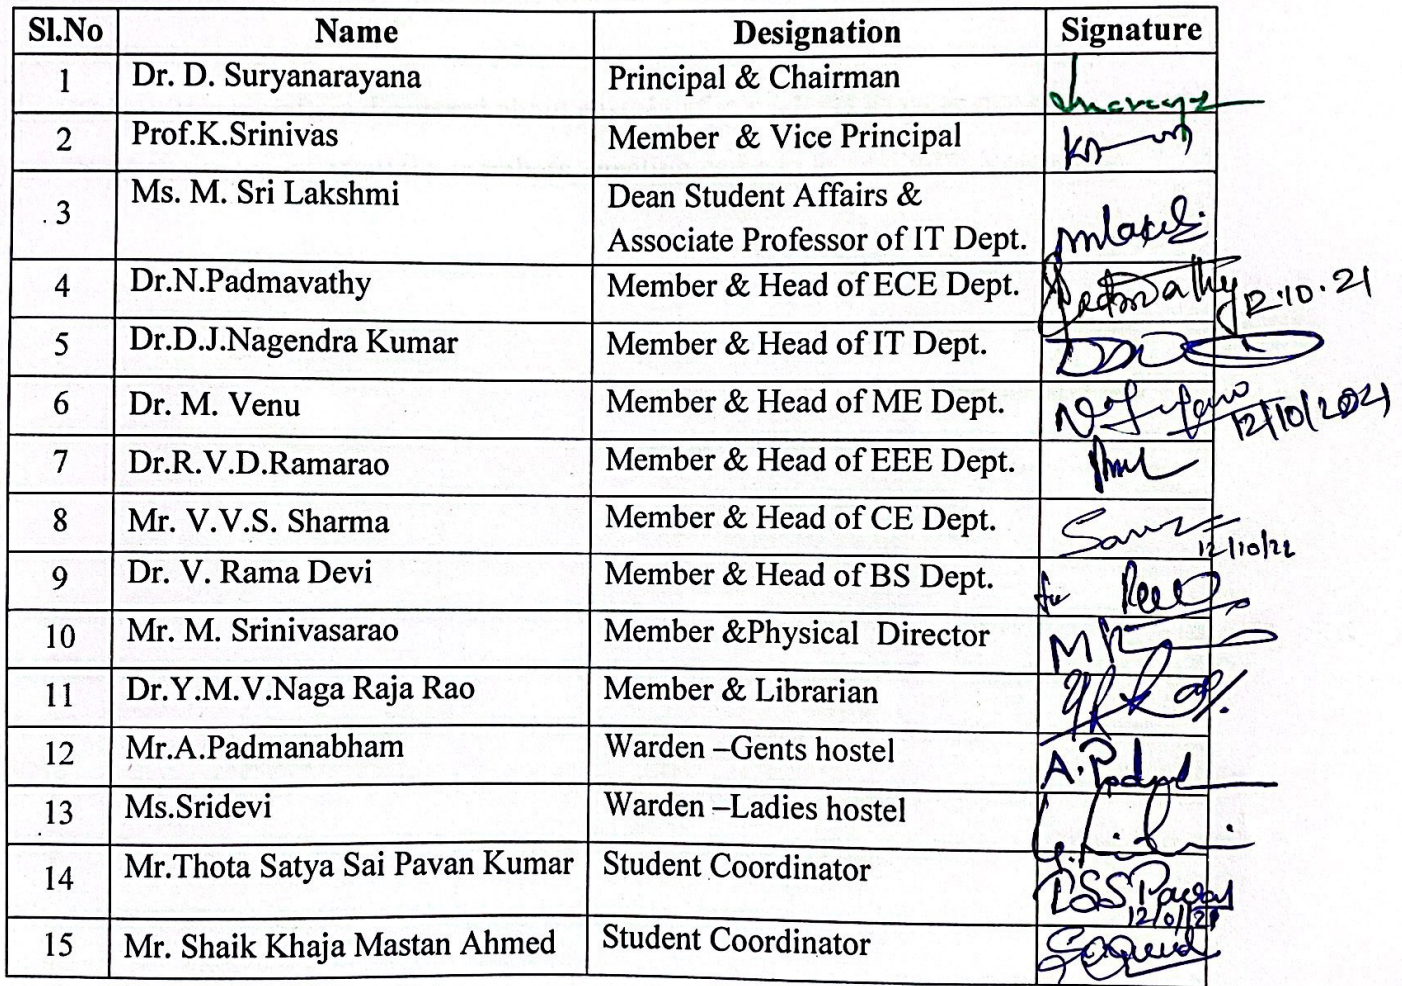 Sl.No Name Designation Signature
1 Dr. D. Suryanarayana Principal & Chairman
2 Prof.K.Srinivas Member & Vice Principal
3 Ms. M. Sri Lakshmi Dean Student Affairs &
Associate Professor of IT Dept.
4 Dr.N.Padmavathy Member & Head of ECE Dept. Padmavathy 12.10.21
5 Dr.D.J.Nagendra Kumar Member & Head of IT Dept.
6 Dr. M. Venu Member & Head of ME Dept. 12/10/2021
7 Dr.R.V.D.Ramarao Member & Head of EEE Dept.
8 Mr. V.V.S. Sharma Member & Head of CE Dept.
12/10/22
9 Dr. V. Rama Devi Member & Head of BS Dept.
10 Mr. M. Srinivasarao Member &Physical Director
11 Dr.Y.M.V.Naga Raja Rao Member & Librarian
12 Mr.A.Padmanabham Warden –Gents hostel
13 Ms.Sridevi Warden –Ladies hostel
14 Mr.Thota Satya Sai Pavan Kumar Student Coordinator
15 Mr. Shaik Khaja Mastan Ahmed Student Coordinator